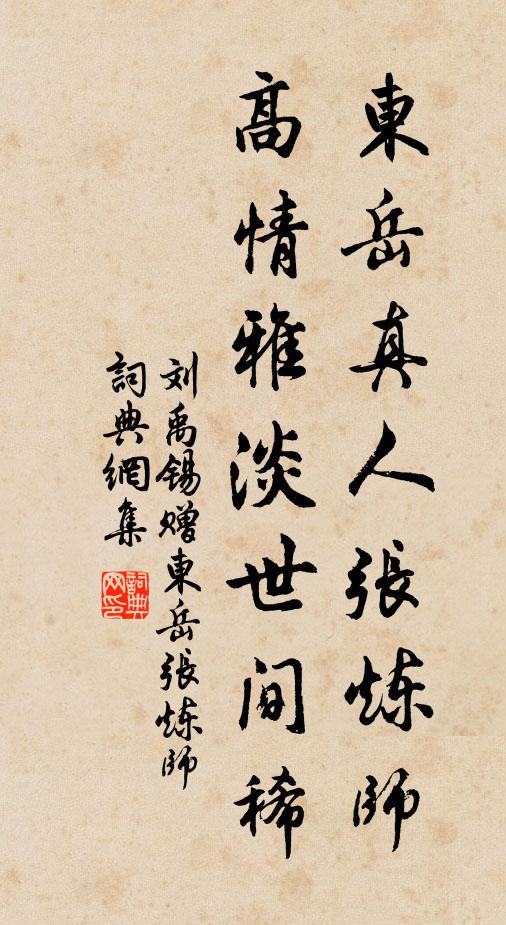 東岳真人張炼師
高情雅淡世间稀
刘禹锡赠東岳張炼師
詞典網集
詞典
网印